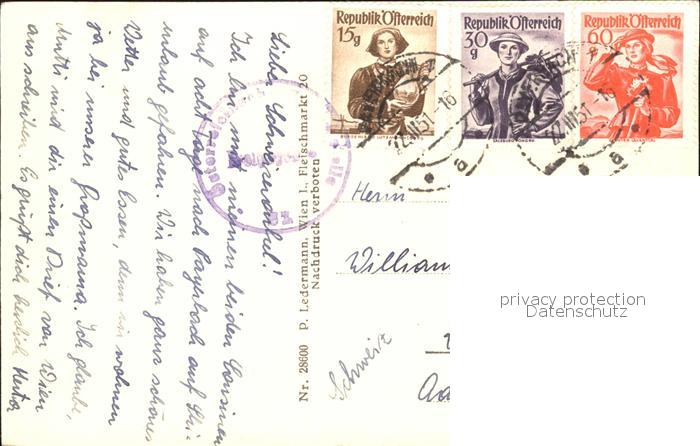 Lieber Schweizeronkel!
Ich bin mit meinen beiden Cousinen
auf acht Tage nach Payerbach auf Ski-
urlaub gefahren. Wir haben ganz schönes
Wetter und gutes Essen, denn wir wohnen
ja bei unserer Großmama. Ich glaube,
Mutti wird dir einen Brief von Wien
aus schreiben. Es grüßt dich herzlich Herta
Nr. 28600 P. Ledermann, Wien I., Fleischmarkt 20
Nachdruck verboten
Republik Österreich
15g
Republik Österreich
30
g
Republik Österreich
60
g
Herrn
William
Schweiz
Aa
privacy protection
Datenschutz